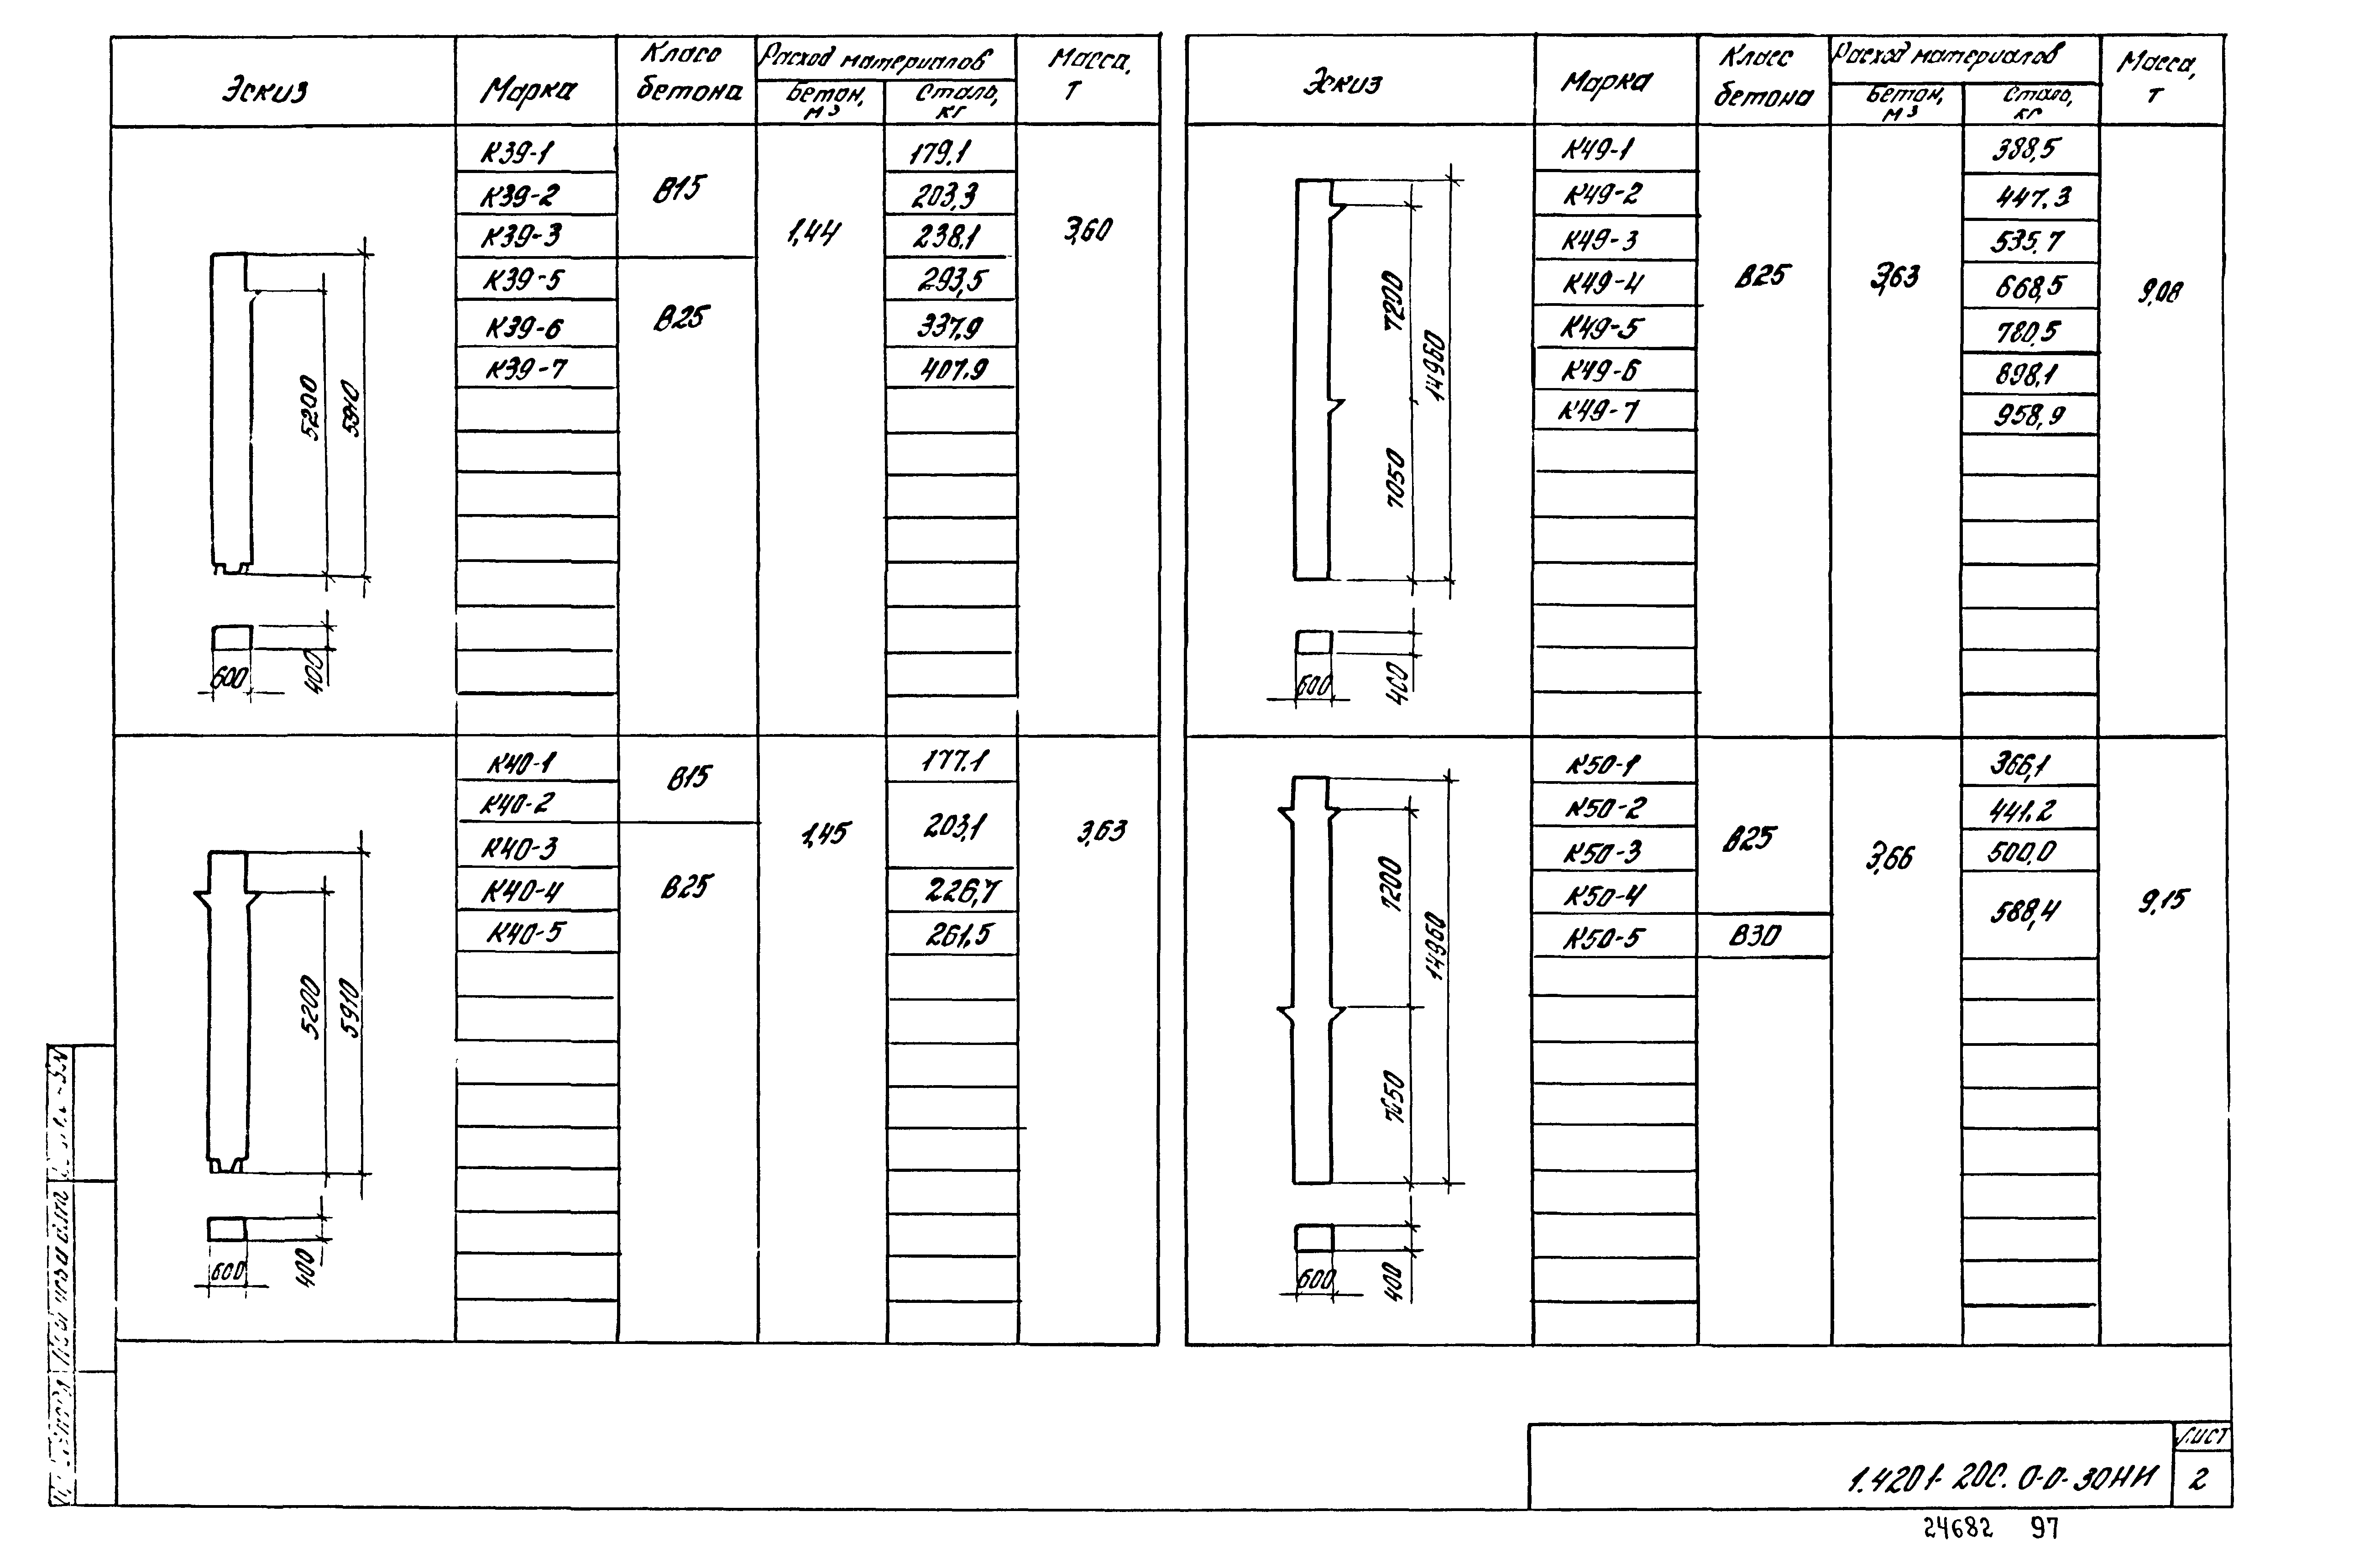 Эскиз Марка Класс бетона Расход материалов Бетон, м3 Сталь, кг Масса, т
К39-1 В15 1,44 179,1 3,60
К39-2 203,3
К39-3 238,1
К39-5 В25 293,5
К39-6 337,9
К39-7 407,9
5200
5910
600
400
К40-1 В15 1,45 177,1 3,63
К40-2 203,1
К40-3 В25
К40-4 226,7
К40-5 261,5
5200
5910
600
400
Эскиз Марка Класс бетона Расход материалов Бетон, м3 Сталь, кг Масса, т
К49-1 В25 3,63 388,5 9,08
К49-2 447,3
К49-3 535,7
К49-4 668,5
К49-5 780,5
К49-6 898,1
К49-7 958,9
7200
14960
7050
600
400
К50-1 В25 3,66 366,1 9,15
К50-2 441,2
К50-3 500,0
К50-4 588,4
К50-5 В30
7200
14960
7050
600
400
1.420.1-20С.0-0-30НИ
Лист
2
24682 97